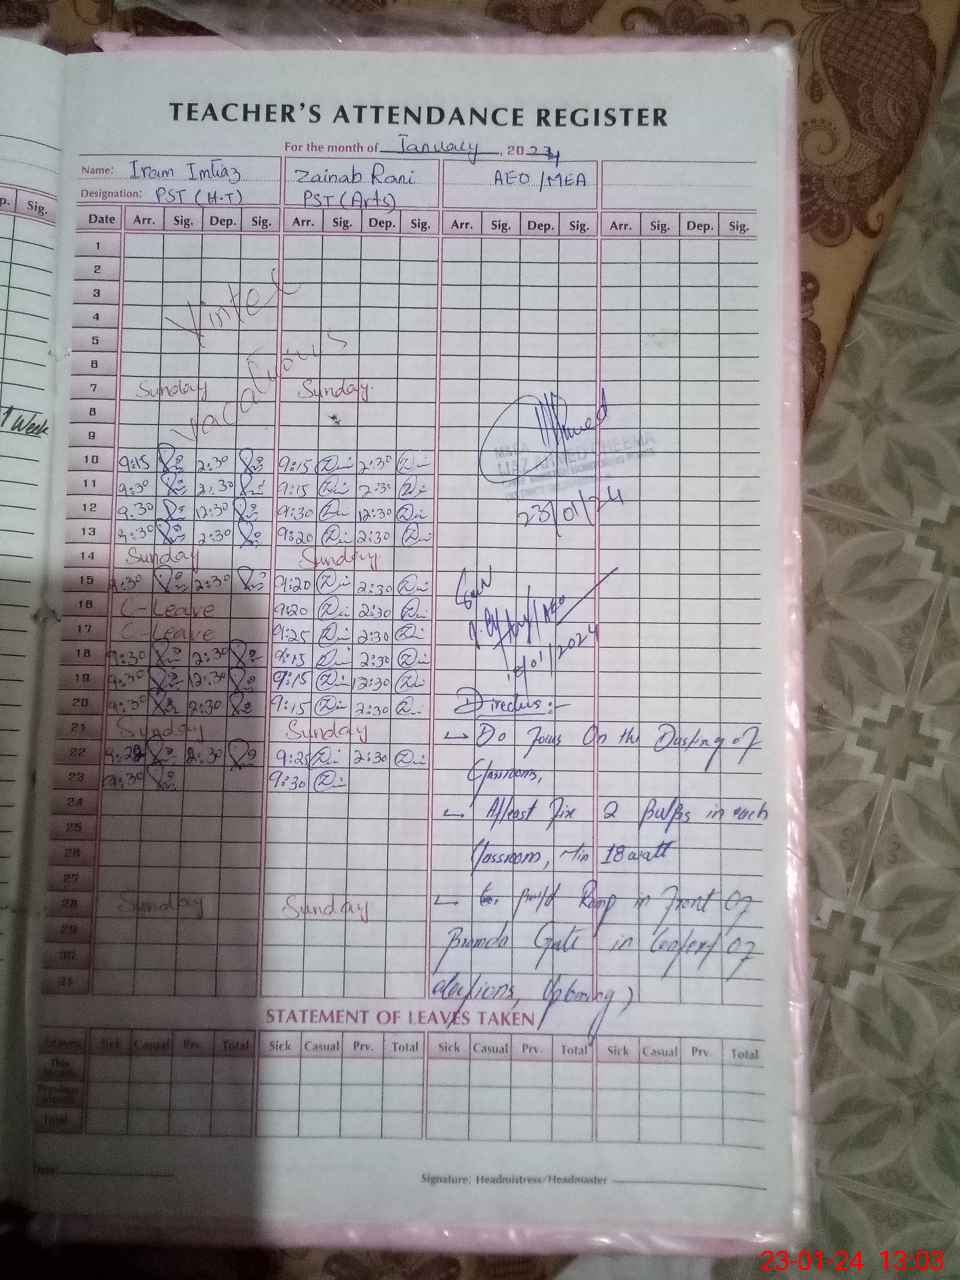 TEACHER'S ATTENDANCE REGISTER
For the month of January, 2024
Name: Iram Imtiaz Zainab Rani AEO/MEA
Designation: PST (H.T) PST (Arts)
Date Arr. Sig. Dep. Sig. Arr. Sig. Dep. Sig. Arr. Sig. Dep. Sig. Arr. Sig. Dep. Sig.
p. Sig.
1
2
3
Vinter
4
5
vacations
6
7 Sunday Sunday
8
1 Week
9
10 9:15 2:30 9:15 2:30
11 9:30 2:30 9:15 2:30
12 9:30 12:30 9:30 12:30
23/01/24
13 9:30 2:30 9:20 2:30
14 Sunday Sunday
15 9:30 2:30 9:20 2:30
16 C-Leave 9:20 2:30
17 C-Leave 9:25 2:30
18 9:30 2:30 9:15 2:30
/01/2024
19 9:30 12:30 9:15 12:30
20 9:30 2:30 9:15 2:30
21 Sunday Sunday
→ Do focus On the Dusting of
22 2:30 9:25 2:30
Classrooms,
23 9:30 9:30
24
→ Atleast Fix 2 Bulbs in each
25
26
Classroom, Min 18 watt
27
28 Sunday Sunday
→ Build Ramp in Front Of
29
30
Gate in Of
31
elections, Upcoming)
STATEMENT OF LEAVES TAKEN
Leaves Sick Casual Prv. Total Sick Casual Prv. Total Sick Casual Prv. Total Sick Casual Prv. Total
This Month
Previous Month
Total
Signature: Headmistress/Headmaster
23-01-24 13:03